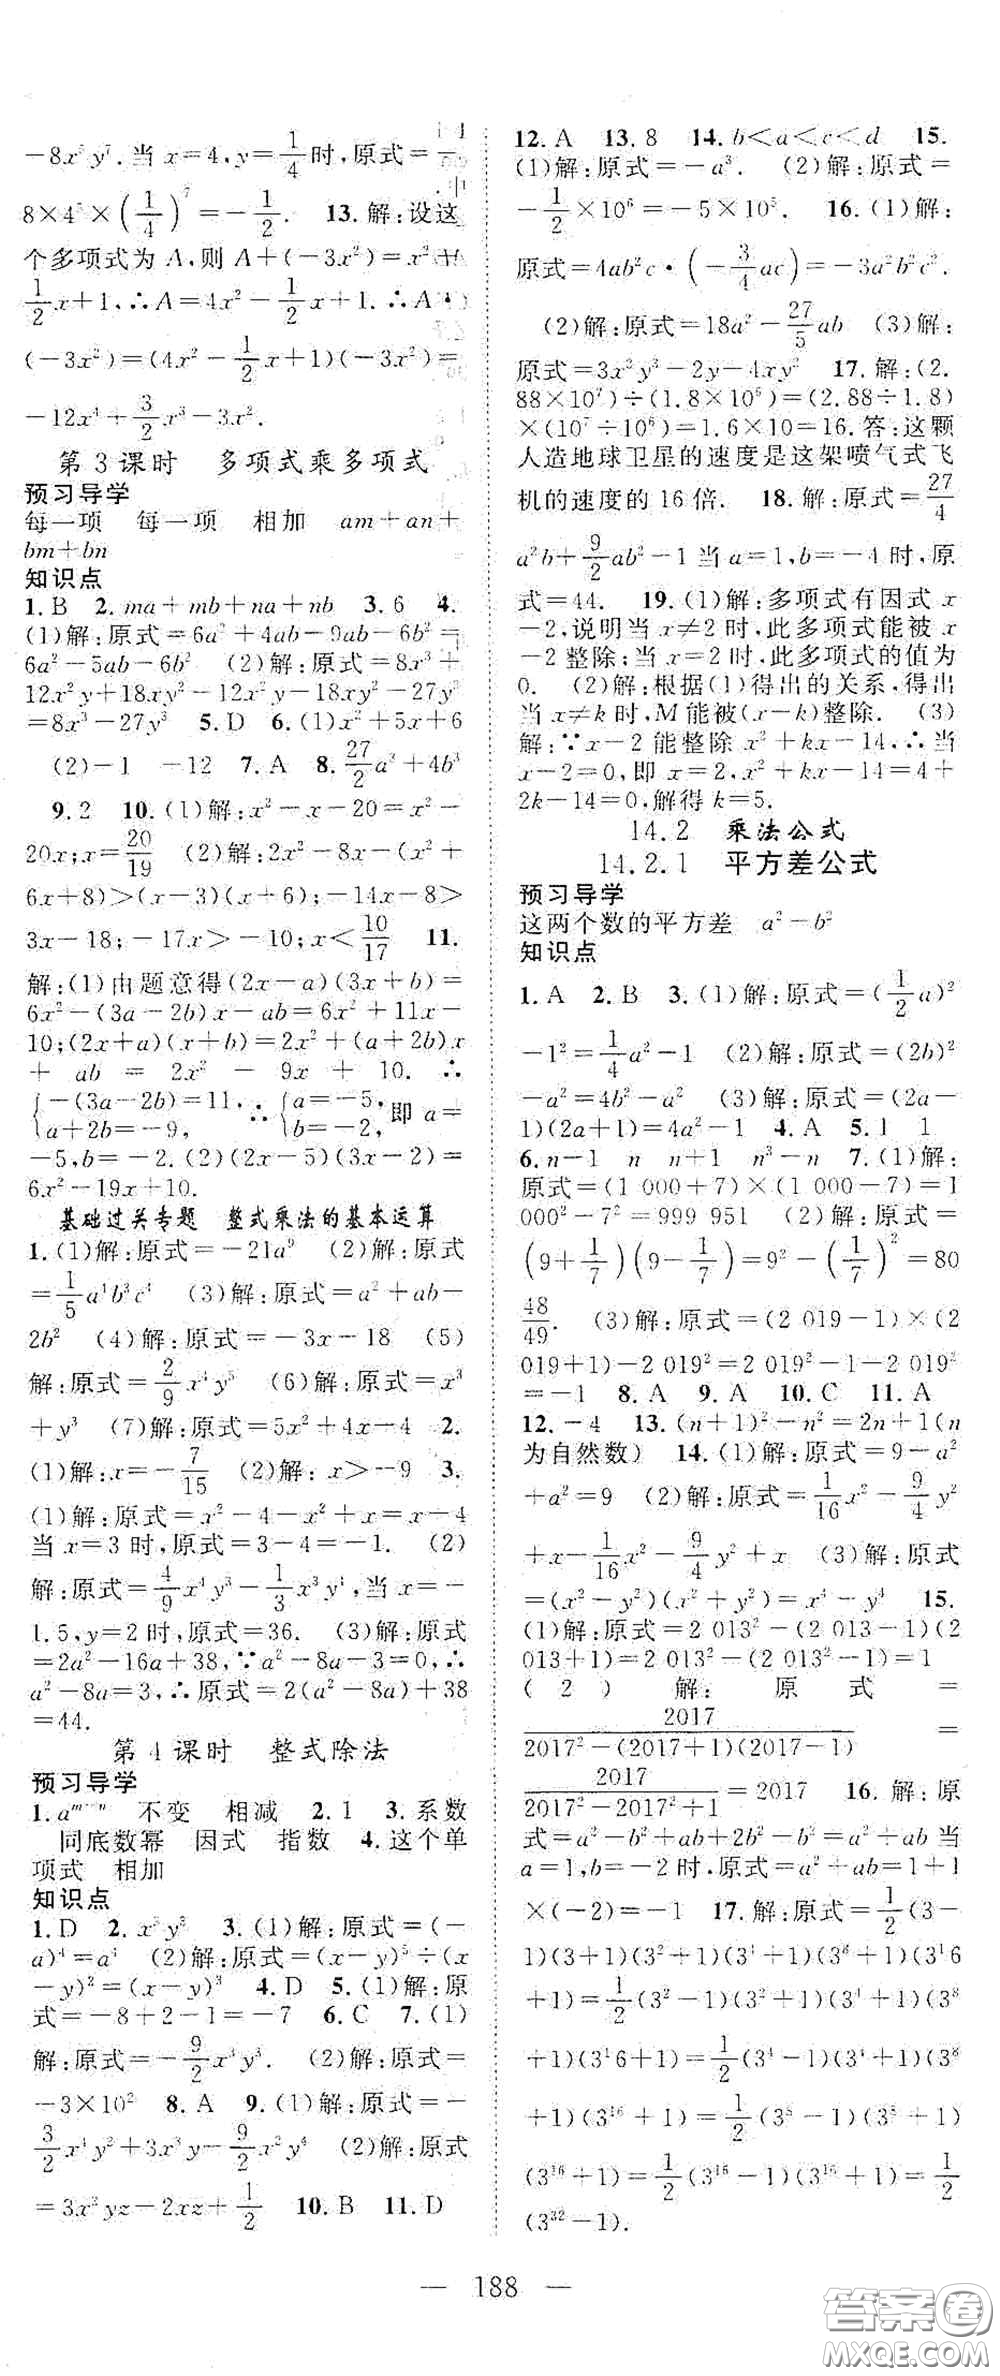 -8x⁵y⁷.当x=4,y=1/4时,原式=-
8×4⁵×(1/4)⁷=-1/2. 13.解:设这
个多项式为A,则A+(-3x²)=x²-
1/2x+1,∴A=4x²-1/2x+1.∴A·
(-3x²)=(4x²-1/2x+1)(-3x²)=
-12x⁴+3/2x³-3x².
第3课时 多项式乘多项式
预习导学
每一项 每一项 相加 am+an+
bm+bn
知识点
1.B 2.ma+mb+na+nb 3.6 4.
(1)解:原式=6a²+4ab-9ab-6b²=
6a²-5ab-6b² (2)解:原式=8x³+
12x²y+18xy²-12x²y-18xy²-27y³
=8x³-27y³ 5.D 6.(1)x²+5x+6
(2)-1 -12 7.A 8.27/2a²+4b³
9.2 10.(1)解:x²-x-20=x²-
20x;x=20/19 (2)解:2x²-8x-(x²-
6x+8)>(x-3)(x+6);-14x-8>
3x-18;-17x>-10;x<10/17 11.
解:(1)由题意得(2x-a)(3x+b)=
6x²-(3a-2b)x-ab=6x²+11x-
10;(2x+a)(x+b)=2x²+(a+2b)x
+ab=2x²-9x+10.∴
{-(3a-2b)=11, a+2b=-9, ∴{a=-5, b=-2, 即a=
-5,b=-2.(2)(2x-5)(3x-2)=
6x²-19x+10.
基础过关专题 整式乘法的基本运算
1.(1)解:原式=-21a⁹ (2)解:原式
=1/5a⁴b³c⁴ (3)解:原式=a²+ab-
2b² (4)解:原式=-3x-18 (5)
解:原式=2/9x⁴y⁵ (6)解:原式=x³
+y³ (7)解:原式=5x²+4x-4 2.
(1)解:x=-7/15 (2)解:x>-9 3.
(1)解:原式=x²-4-x²+x=x-4
当x=3时,原式=3-4=-1. (2)
解:原式=4/9x⁴y³-1/3x³y⁴,当x=-
1.5,y=2时,原式=36. (3)解:原式
=2a²-16a+38,∵a²-8a-3=0,∴
a²-8a=3,∴原式=2(a²-8a)+38
=44.
第4课时 整式除法
预习导学
1.aᵐ⁻ⁿ 不变 相减 2.1 3.系数
同底数幂 因式 指数 4.这个单
项式 相加
知识点
1.D 2.x⁵y⁵ 3.(1)解:原式=(-
a)⁴=a⁴ (2)解:原式=(x-y)⁵÷(x
-y)²=(x-y)³ 4.D 5.(1)解:原
式=-8+2-1=-7 6.C 7.(1)
解:原式=-9/2x⁴y³. (2)解:原式=
-3×10² 8.A 9.(1)解:原式=-
3/2x⁴y²+3x³y-9/2x²y⁶ (2)解:原式
=3x²yz-2xz+1/2 10.B 11.D
12.A 13.8 14.b<a<c<d 15.
(1)解:原式=-a³. (2)解:原式=
-1/2×10⁶=-5×10⁵. 16.(1)解:
原式=4ab²c·(-3/4ac)=-3a²b²c².
(2)解:原式=18a²-27/5ab (3)解:
原式=3x³y³-2y-4xy² 17.解:(2.
88×10⁷)÷(1.8×10⁶)=(2.88÷1.8)
×(10⁷÷10⁶)=1.6×10=16.答:这颗
人造地球卫星的速度是这架喷气式飞
机的速度的16倍. 18.解:原式=27/4
a²b+9/2ab²-1当a=1,b=-4时,原
式=44. 19.(1)解:多项式有因式x
-2,说明当x≠2时,此多项式能被x
-2整除;当x=2时,此多项式的值为
0. (2)解:根据(1)得出的关系,得出
当x≠k时,M能被(x-k)整除. (3)
解:∵x-2能整除x²+kx-14,∴当
x-2=0,即x=2,x²+kx-14=4+
2k-14=0,解得k=5.
14.2 乘法公式
14.2.1 平方差公式
预习导学
这两个数的平方差 a²-b²
知识点
1.A 2.B 3.(1)解:原式=(1/2a)²
-1²=1/4a²-1 (2)解:原式=(2b)²
-a²=4b²-a² (3)解:原式=(2a-
1)(2a+1)=4a²-1 4.A 5.1 1
6.n-1 n n+1 n³-n 7.(1)解:
原式=(1 000+7)×(1 000-7)=1
000²-7²=999 951 (2)解:原式=
(9+1/7)(9-1/7)=9²-(1/7)²=80
48/49. (3)解:原式=(2 019-1)×(2
019+1)-2 019²=2 019²-1-2 019²
=-1 8.A 9.A 10.C 11.A
12.-4 13.(n+1)²-n²=2n+1(n
为自然数) 14.(1)解:原式=9-a²
+a²=9 (2)解:原式=1/16x²-9/4y²
+x-1/16x²-9/4y²+x (3)解:原式
=(x²-y²)(x²+y²)=x⁴-y⁴ 15.
(1)解:原式=2 013²-(2 013-1)(2
013+1)=2 013²-2 013²+1=1
(2)解:原式=
2017/(2017²-(2017+1)(2017-1))=
2017/(2017²-2017²+1)=2017 16.解:原
式=a²-b²+ab+2b²-b²=a²+ab当
a=1,b=-2时,原式=a²+ab=1+1
×(-2)=-1 17.解:原式=1/2(3-
1)(3+1)(3²+1)(3⁴+1)(3⁸+1)(3¹6
+1)=1/2(3²-1)(3²+1)(3⁴+1)(3⁸
+1)(3¹6+1)=1/2(3⁴-1)(3⁴+1)(3⁸
+1)(3¹⁶+1)=1/2(3⁸-1)(3⁸+1)
(3¹⁶+1)=1/2(3¹⁶-1)(3¹⁶+1)=1/2
(3³²-1).
— 188 —
答案圈
MXQE.COM